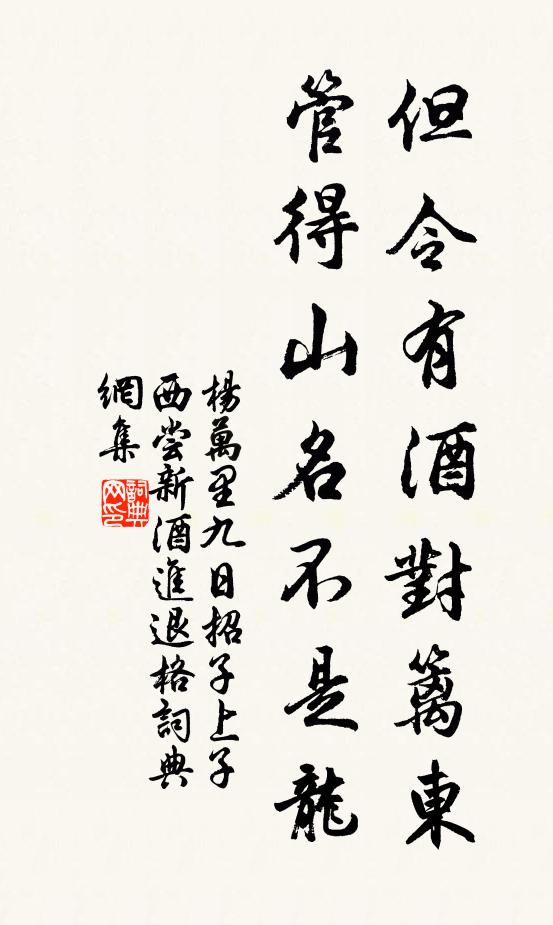 但令有酒對籬東
管得山名不是龍
楊萬里九日招子上子
西嘗新酒進退格詞典
網集
詞典網印